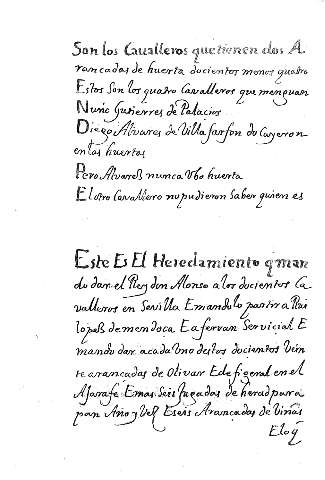 Son los Caualleros que tienen dos A
rancadas de huerta docientos menos quatro
Estos son los quatro Cavalleros que menguan
Nuño Gutierres de Palacios
Diego Alvares de Villa
en las huertas
Pero Alvares nunca Vbo huerta
El otro Cavallero no pudieron saber quien es
Este Es El Heredamiento q̄ man
do dar el Rey don Alonso a los docientos Ca
valleros en Sevilla E mandolo partir a Rui
lopes de mendoca E a fervan Servicial E
mando dar a cada Uno destos docientos Vein
te arancadas de Olivar E de figeral en el
Ajarafe E mas Seis Iugadas de heradpara
pan Año y Ves E seis Arancadas de Viñas
E lo q̄